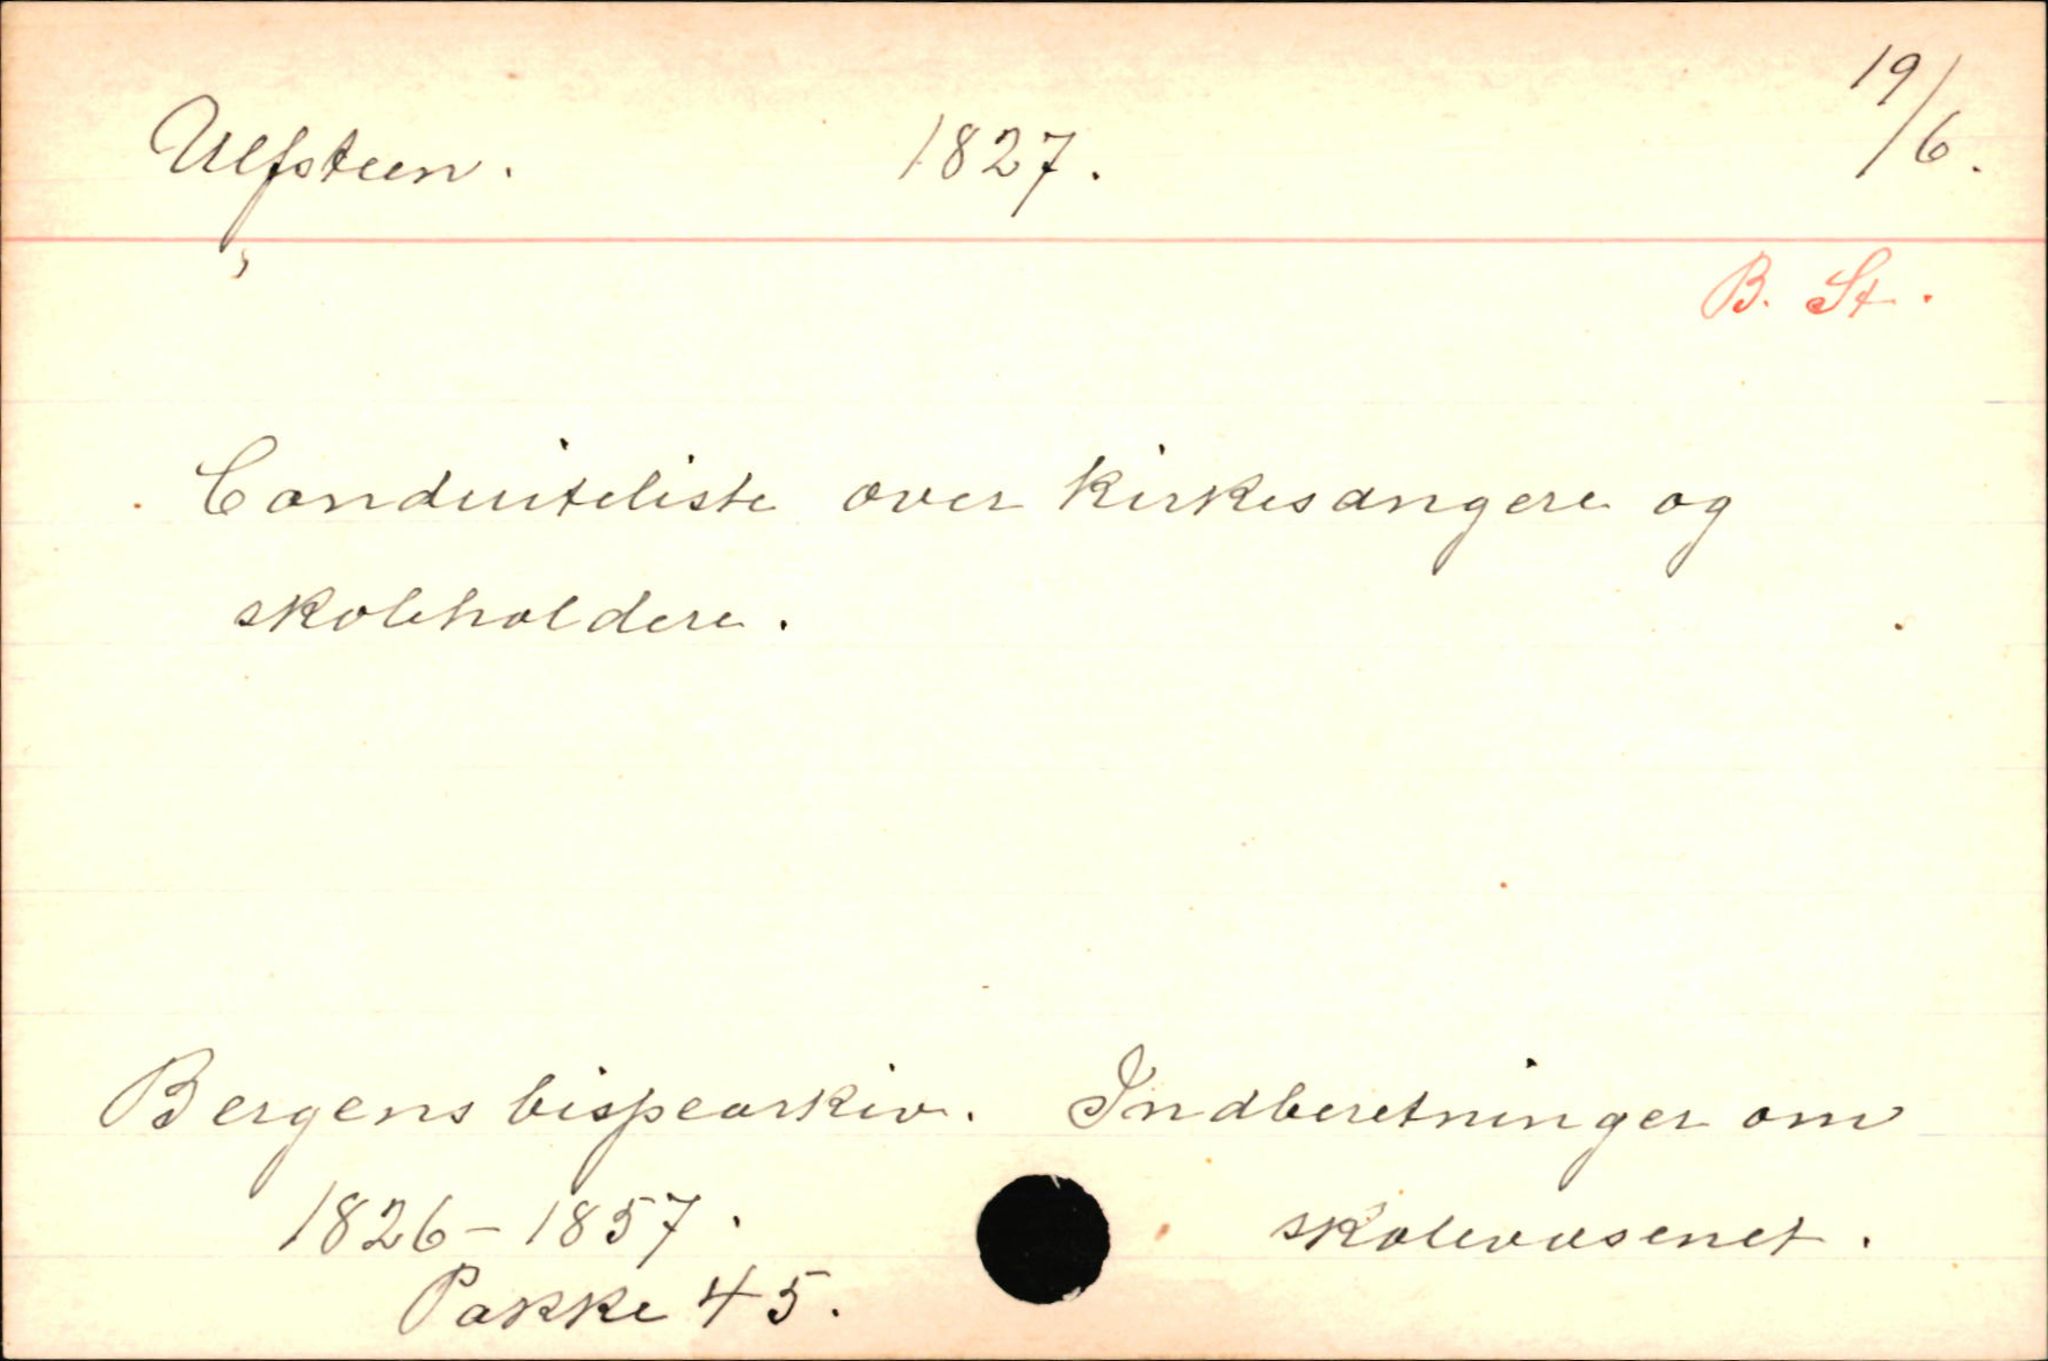 Ulfsteen. 1827. 19/6.
B. St.
Conduiteliste over kirkesangere og
skoleholdere.
Bergens bispearkiv. Indberetninger om
1826-1857. skolevæsenet.
Pakke 45.